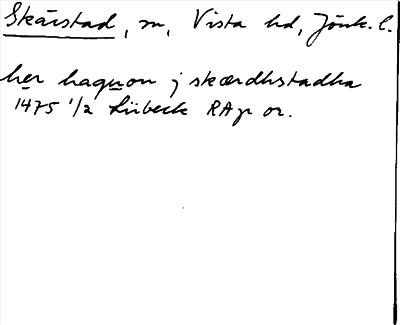 Skärstad, sn, Vista hd, Jönk. l.
her haquon j skærdhstadha
1475 1/2 Lübeck RAp or.